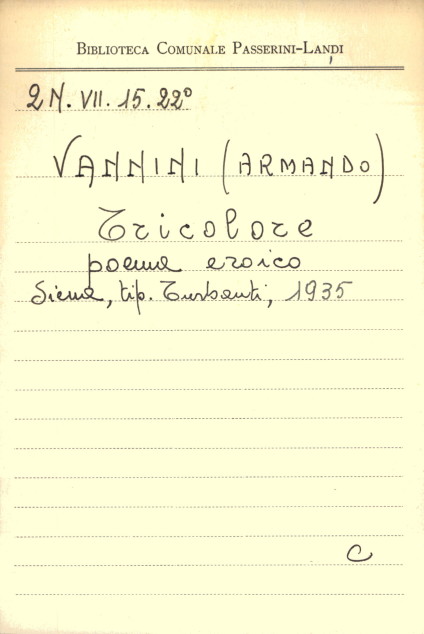 BIBLIOTECA COMUNALE PASSERINI-LANDI
2 N. VII. 15. 22º
VANNINI (ARMANDO)
Tricolore
poema eroico
Siena, tip. Turbanti, 1935
C